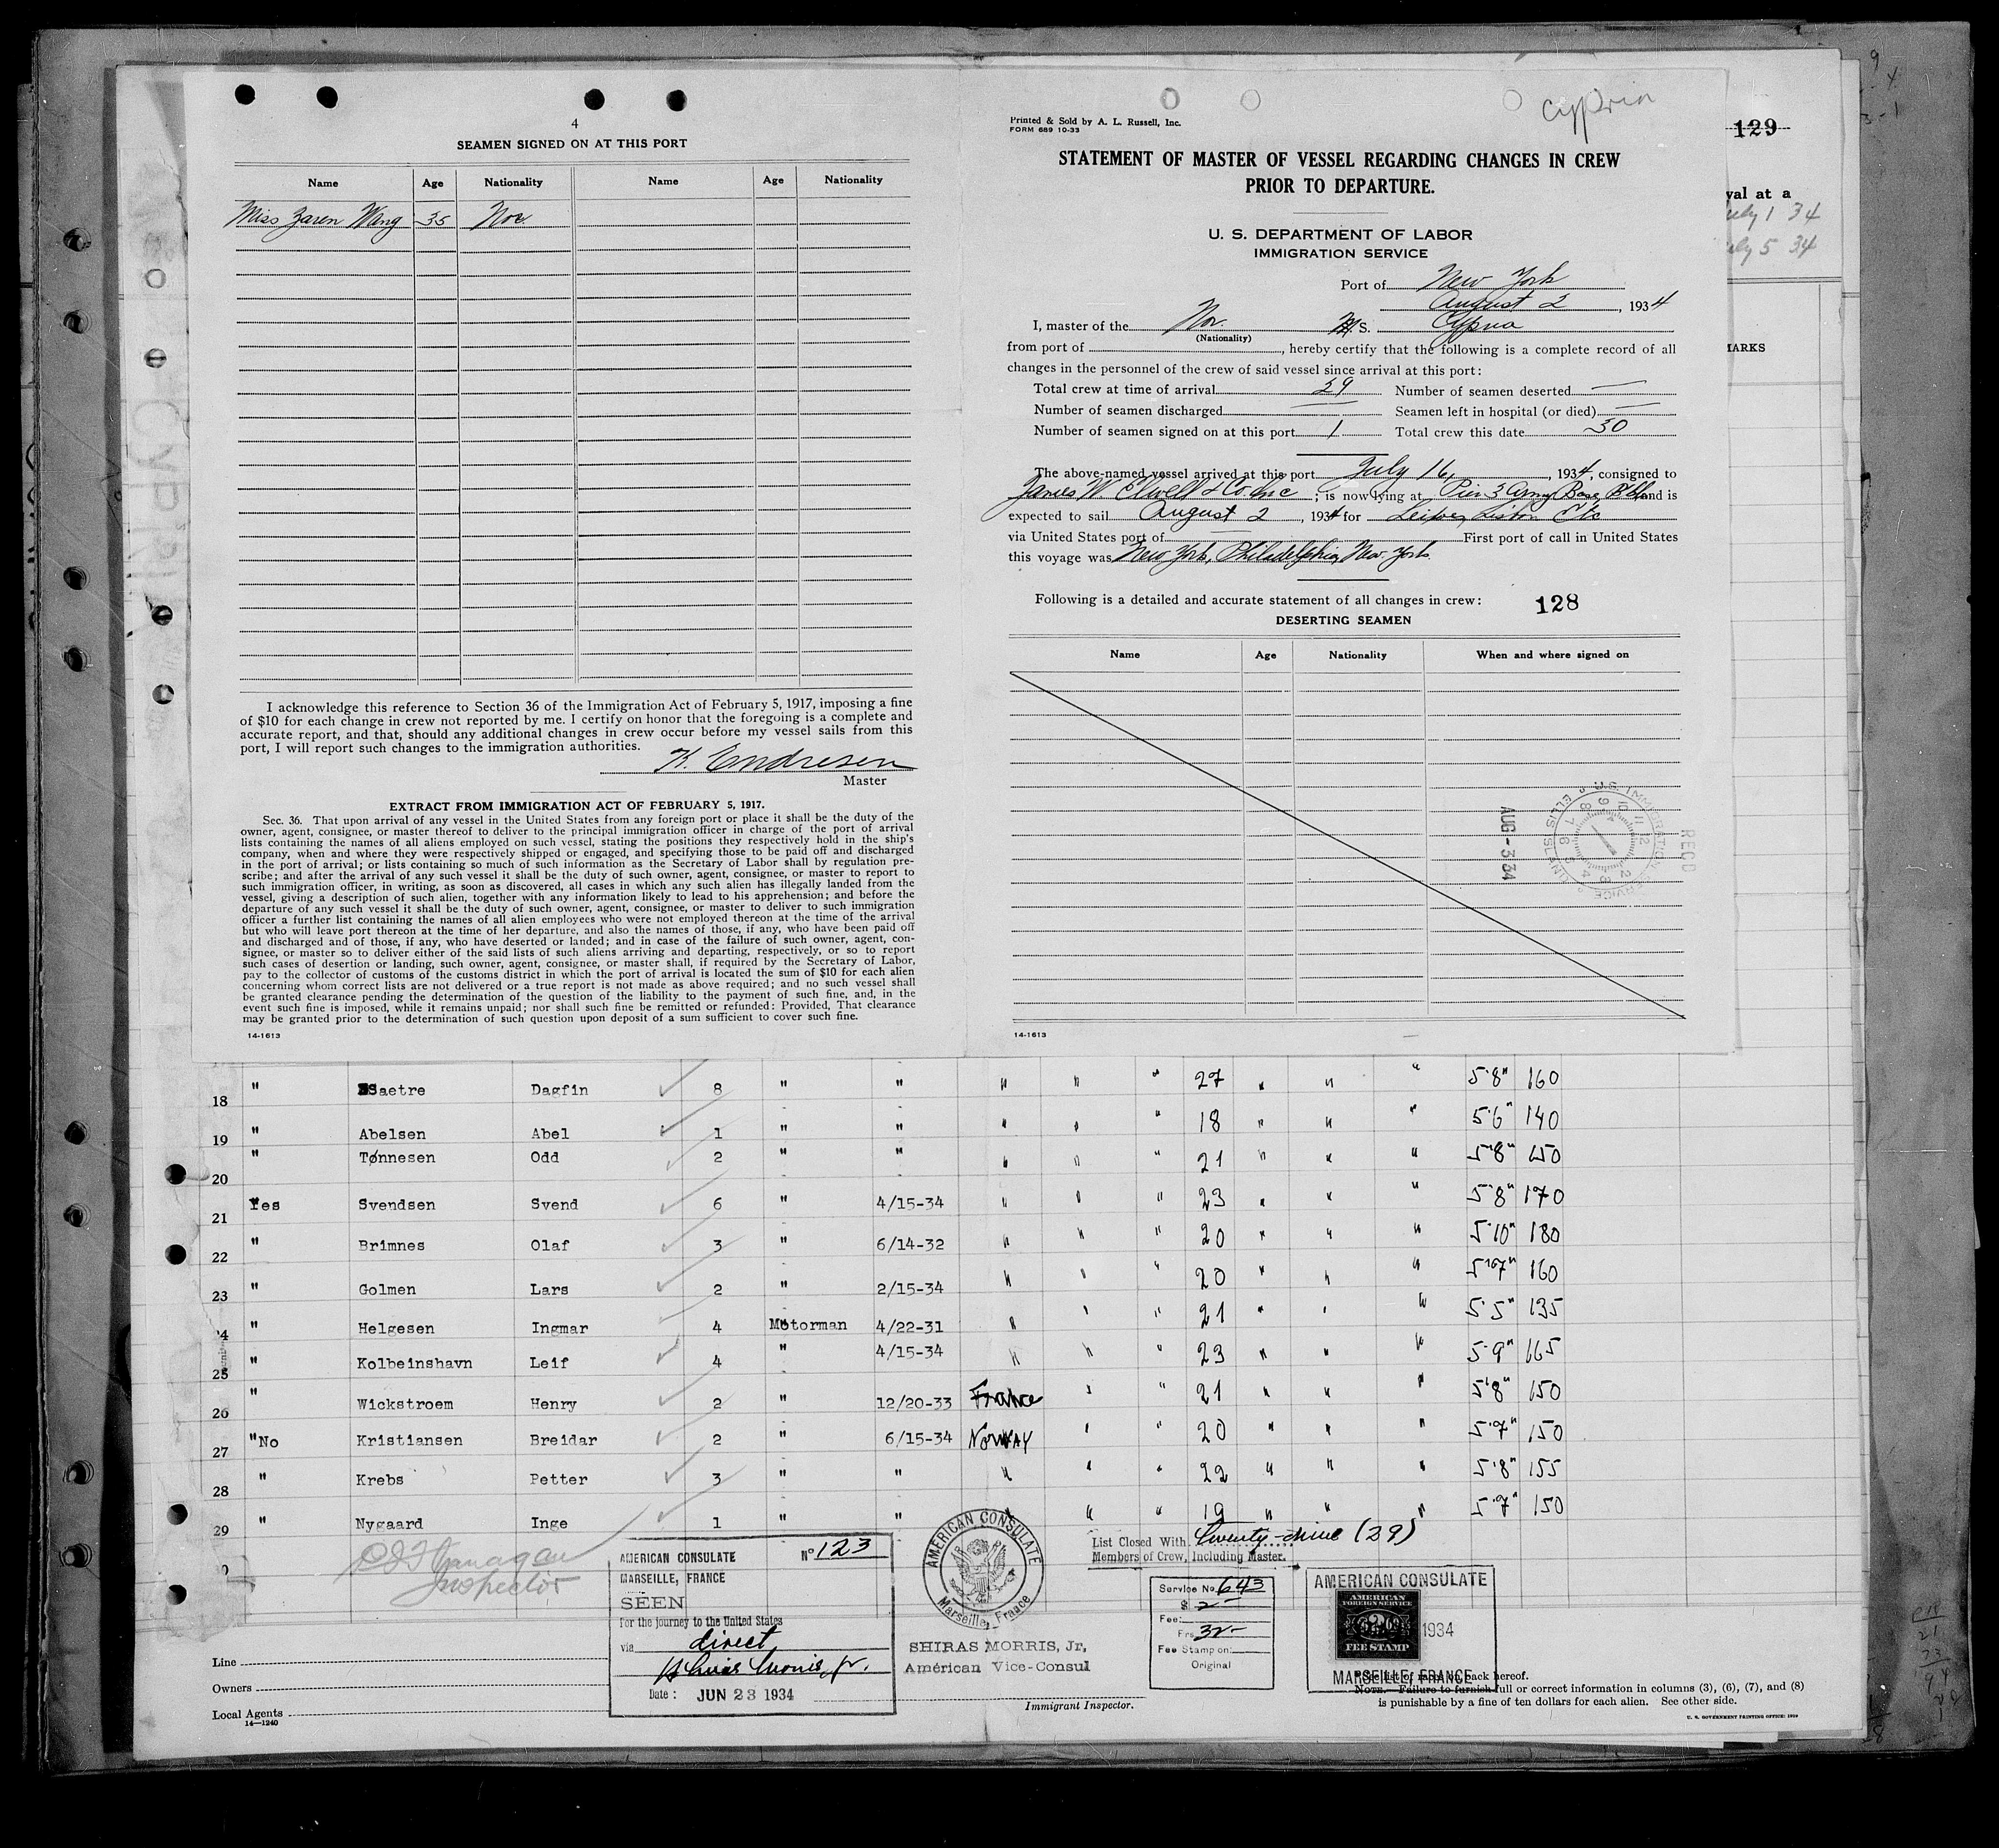 4
SEAMEN SIGNED ON AT THIS PORT
Name Age Nationality Name Age Nationality
Miss Zaren Wang 35 Nor.
I acknowledge this reference to Section 36 of the Immigration Act of February 5, 1917, imposing a fine
of $10 for each change in crew not reported by me. I certify on honor that the foregoing is a complete and
accurate report, and that, should any additional changes in crew occur before my vessel sails from this
port, I will report such changes to the immigration authorities.
K. Endresen
Master
EXTRACT FROM IMMIGRATION ACT OF FEBRUARY 5, 1917.
Sec. 36. That upon arrival of any vessel in the United States from any foreign port or place it shall be the duty of the
owner, agent, consignee, or master thereof to deliver to the principal immigration officer in charge of the port of arrival
lists containing the names of all aliens employed on such vessel, stating the positions they respectively hold in the ship's
company, when and where they were respectively shipped or engaged, and specifying those to be paid off and discharged
in the port of arrival; or lists containing so much of such information as the Secretary of Labor shall by regulation pre-
scribe; and after the arrival of any such vessel it shall be the duty of such owner, agent, consignee, or master to report to
such immigration officer, in writing, as soon as discovered, all cases in which any such alien has illegally landed from the
vessel, giving a description of such alien, together with any information likely to lead to his apprehension; and before the
departure of any such vessel it shall be the duty of such owner, agent, consignee, or master to deliver to such immigration
officer a further list containing the names of all alien employees who were not employed thereon at the time of the arrival
but who will leave port thereon at the time of her departure, and also the names of those, if any, who have been paid off
and discharged and of those, if any, who have deserted or landed; and in case of the failure of such owner, agent, con-
signee, or master so to deliver either of the said lists of such aliens arriving and departing, respectively, or so to report
such cases of desertion or landing, such owner, agent, consignee, or master shall, if required by the Secretary of Labor,
pay to the collector of customs of the customs district in which the port of arrival is located the sum of $10 for each alien
concerning whom correct lists are not delivered or a true report is not made as above required; and no such vessel shall
be granted clearance pending the determination of the question of the liability to the payment of such fine, and, in the
event such fine is imposed, while it remains unpaid; nor shall such fine be remitted or refunded: Provided, That clearance
may be granted prior to the determination of such question upon deposit of a sum sufficient to cover such fine.
14-1613
Cypria
Printed & Sold by A. L. Russell, Inc.
FORM 689 10-33
STATEMENT OF MASTER OF VESSEL REGARDING CHANGES IN CREW
PRIOR TO DEPARTURE.
U. S. DEPARTMENT OF LABOR
IMMIGRATION SERVICE
Port of New York
August 2, 1934
I, master of the Nor. M S. Cypria
(Nationality)
from port of , hereby certify that the following is a complete record of all
changes in the personnel of the crew of said vessel since arrival at this port:
Total crew at time of arrival 29 Number of seamen deserted —
Number of seamen discharged — Seamen left in hospital (or died) —
Number of seamen signed on at this port 1 Total crew this date 30
The above-named vessel arrived at this port July 16, 1934, consigned to
James W Elwell & Co. Inc ; is now lying at Pier 3 Army Base Bkln and is
expected to sail August 2, 1934 for Lisbon Etc
via United States port of First port of call in United States
this voyage was New York, Philadelphia, New York.
Following is a detailed and accurate statement of all changes in crew: 128
DESERTING SEAMEN
Name Age Nationality When and where signed on
RECD
AUG-3 34
U.S. IMMIGRATION SERVICE ELLIS
14-1613
129
val at a
July 1 34
July 5 34
MARKS
18 " Saetre Dagfin 8 " " " " " 27 " " " 5'8" 160
19 " Abelsen Abel 1 " " " " " 18 " " " 5'6" 140
20 " Tønnesen Odd 2 " " " " " 21 " " " 5'8" 150
21 Yes Svendsen Svend 6 " 4/15-34 " " " 23 " " " 5'8" 170
22 " Brimnes Olaf 3 " 6/14-32 " " " 20 " " " 5'10" 180
23 " Golmen Lars 2 " 2/15-34 " " " 20 " " " 5'7" 160
24 " Helgesen Ingmar 4 Motorman 4/22-31 " " " 21 " " " 5'5" 135
25 " Kolbeinshavn Leif 4 " 4/15-34 " " " 23 " " " 5'9" 165
26 " Wickstroem Henry 2 " 12/20-33 France " " 21 " " " 5'8" 150
27 "No Kristiansen Breidar 2 " 6/15-34 Norway " " 20 " " " 5'7" 150
28 " Krebs Petter 3 " " " " " 22 " " " 5'8" 155
29 " Nygaard Inge 1 " " " " " 19 " " " 5'7" 150
Inspector
AMERICAN CONSULATE No 123
MARSEILLE, FRANCE
SEEN
For the journey to the United States
via direct
Shiras Morris, Jr.
Date: JUN 23 1934
AMERICAN CONSULATE
Marseille, France
SHIRAS MORRIS, Jr,
American Vice-Consul
List Closed With Twenty-nine (29)
Members of Crew, Including Master.
Service No. 643
$ 2-
Fee:
Frs 32-
Fee Stamp on:
Original
AMERICAN CONSULATE
AMERICAN
FOREIGN SERVICE
$2.00
FEE STAMP
1934
MARSEILLE, FRANCE
Line
Owners
Local Agents
14—1240
Immigrant Inspector.
back hereof.
NOTE.—Failure to furnish full or correct information in columns (3), (6), (7), and (8)
is punishable by a fine of ten dollars for each alien. See other side.
U. S. GOVERNMENT PRINTING OFFICE: 1929